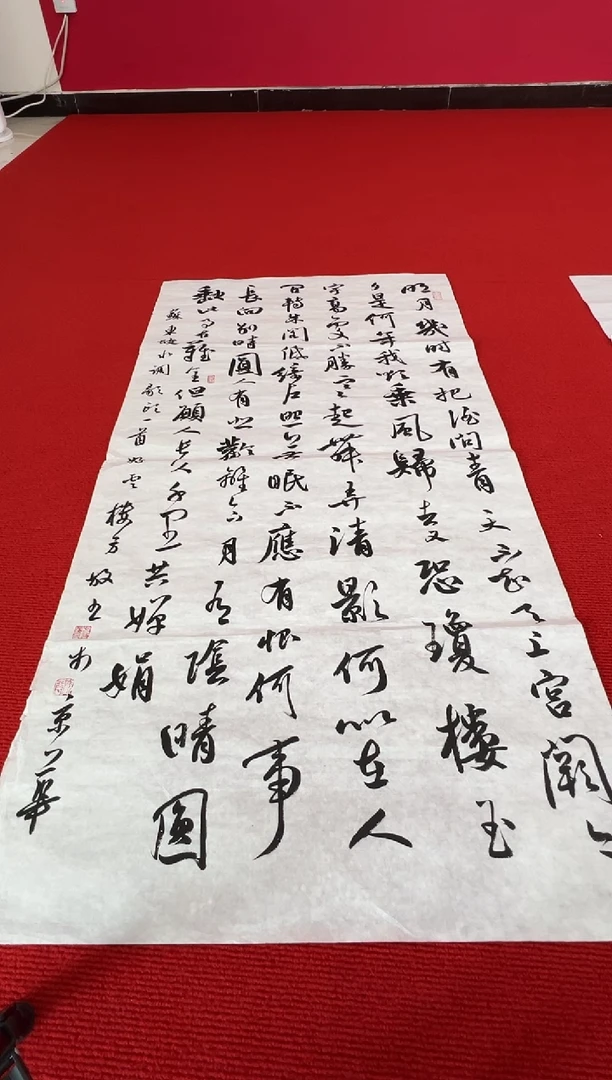 明月幾時有把酒問青天不知天上宮闕今
夕是何年我欲乘風歸去又恐瓊樓玉
宇高處不勝寒起舞弄清影何似在人
間轉朱閣低綺戶照無眠不應有恨何事
長向別時圓人有悲歡離合月有陰晴圓
缺此事古難全但願人長久千里共嬋娟
蘇東坡水調歌頭一首 樓方 於京華